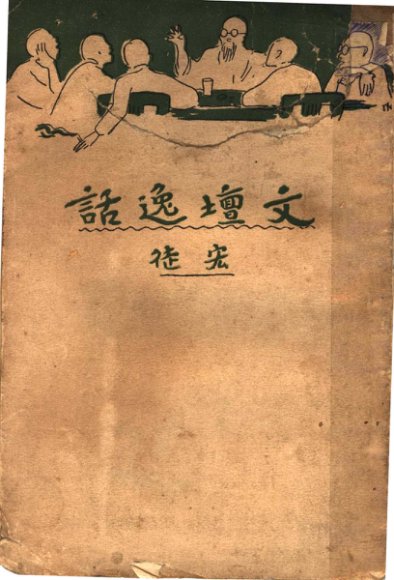 文壇逸話
宏徒